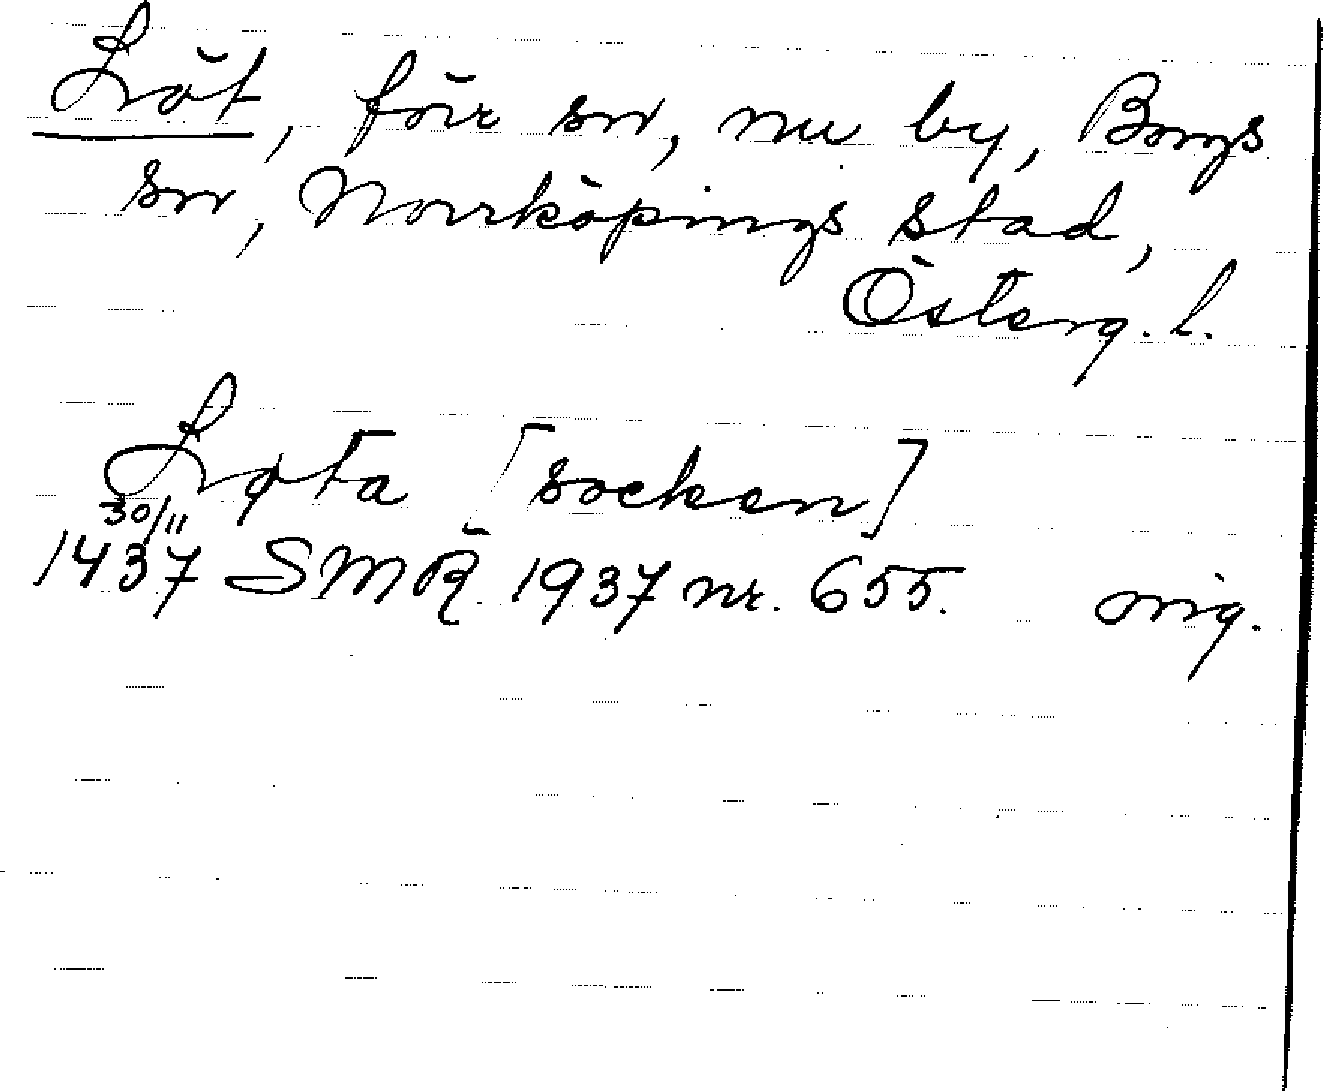 Löt, förr sn, nu by, Borgs
sn, Norrköpings stad,
Österg. l.
Løta [socken]
30/11
1437 SMR 1937 nr. 655. orig.